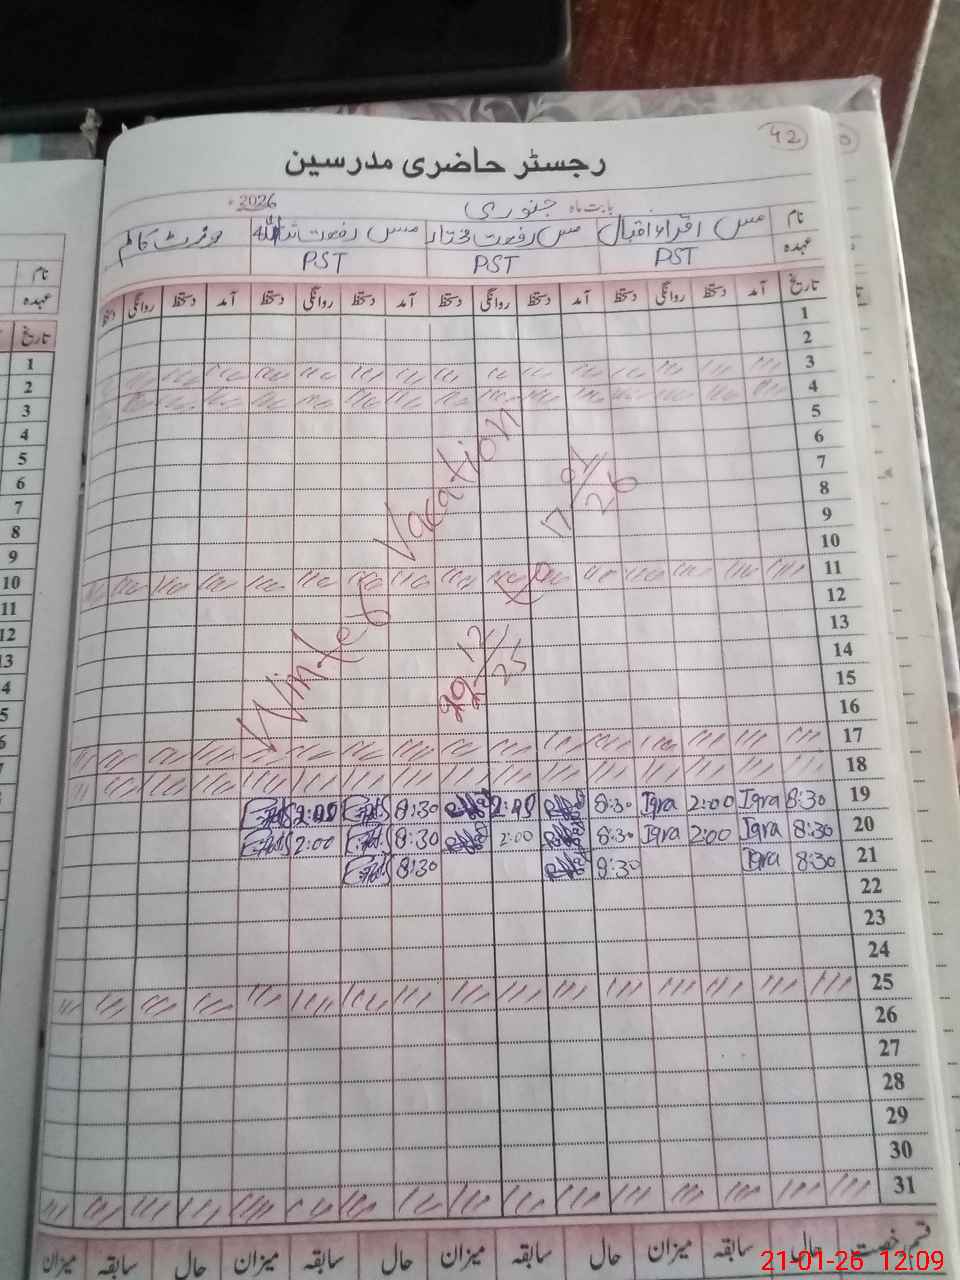 42
رجسٹر حاضری مدرسین
بابت ماہ جنوری 2026ء
نام مس اقراء اقبال مس رفعت مختار مس رفعت ثناءاللہ
عہدہ PST PST PST
تاریخ آمد دستخط روانگی دستخط آمد دستخط روانگی دستخط آمد دستخط روانگی دستخط روانگی دستخط
1
2
3
4
5
6
7
8
9
10
11
12
13
14
15
16
17
18
Winter Vacation
12/25 to 17 01/26
19 8:30 Iqra 2:00 Iqra 8:30 8:30
20 8:30 Iqra 2:00 Iqra 8:30 2:00 8:30 2:00
21 8:30 Iqra 8:30 8:30
22
23
24
25
26
27
28
29
30
31
قسم رخصت حال سابقہ میزان حال سابقہ میزان حال سابقہ میزان حال سابقہ میزان
نام
عہدہ
تاریخ
1
2
3
4
5
6
7
8
9
10
11
12
13
21-01-26 12:09